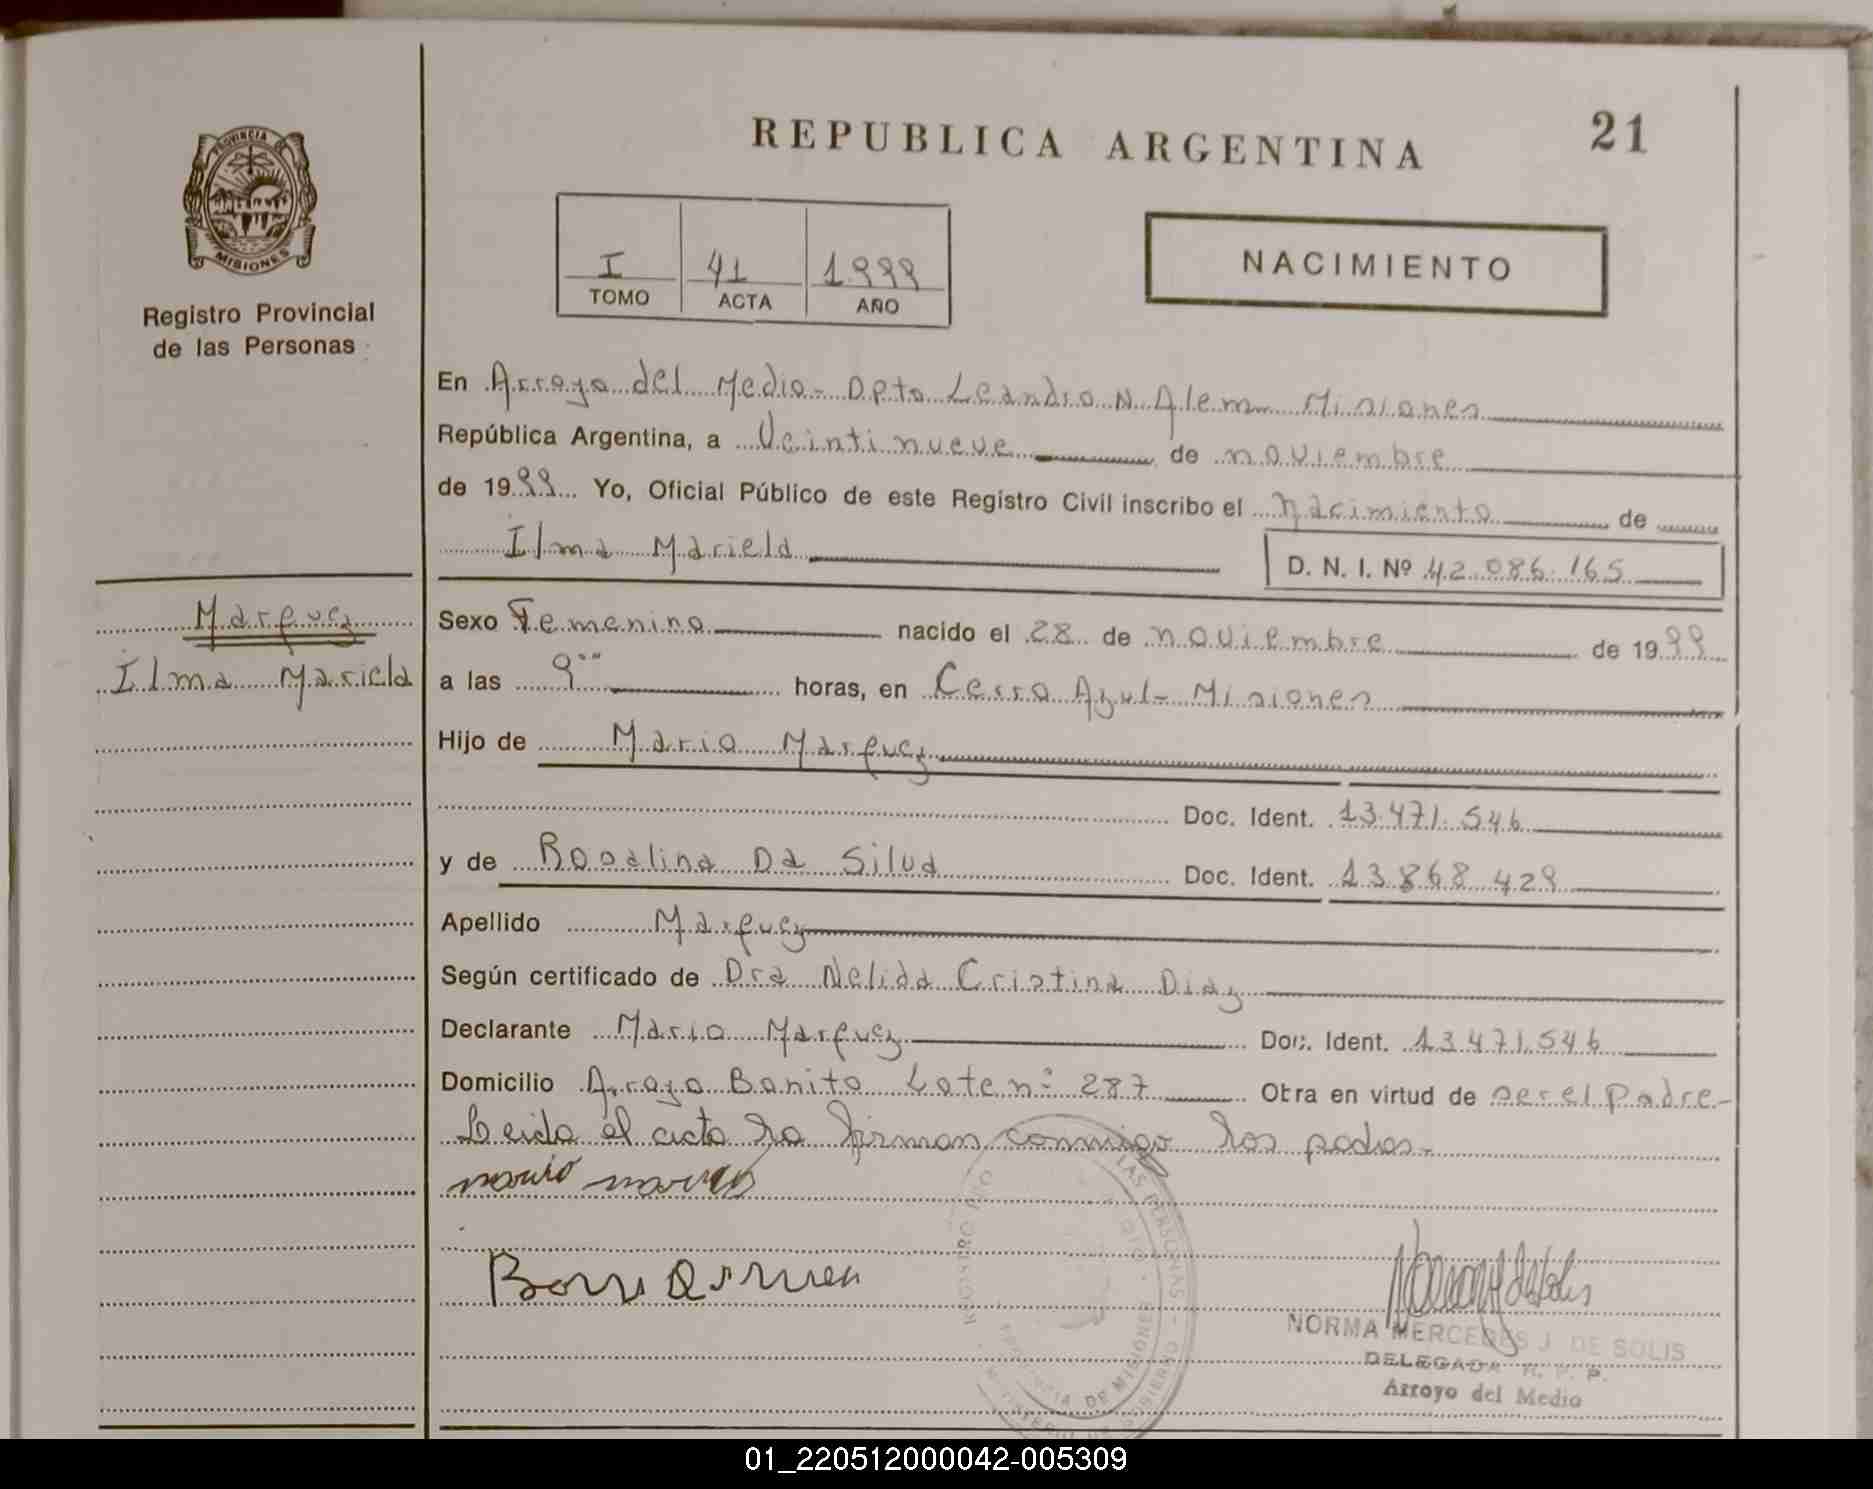 REPUBLICA ARGENTINA
21
PROVINCIA
MISIONES
Registro Provincial
de las Personas
I 41 1.999
TOMO ACTA AÑO
NACIMIENTO
En Arroyo del Medio - Dpto Leandro N. Alem Misiones
República Argentina, a Veintinueve de noviembre
de 1999 Yo, Oficial Público de este Registro Civil inscribo el nacimiento de
Ilma Mariela
D. N. I. Nº 42.086.165
Marquez
Ilma Mariela
Sexo Femenino nacido el 28 de noviembre de 1999
a las 9 horas, en Cerro Azul - Misiones
Hijo de Mario Marquez
Doc. Ident. 13.471.546
y de Rosalina Da Silva Doc. Ident. 13.868.429
Apellido Marquez
Según certificado de Dra Nelida Cristina Diaz
Declarante Mario Marquez Doc. Ident. 13.471.546
Domicilio Arroyo Bonito Lote nº 287 Obra en virtud de ser el padre -
Leida el acta la firman conmigo los padres. -
LAS PERSONAS
PROVINCIA DE MISIONES
NORMA MERCEDES J. DE SOLIS
DELEGADA R. P. P.
Arroyo del Medio
01_220512000042-005309